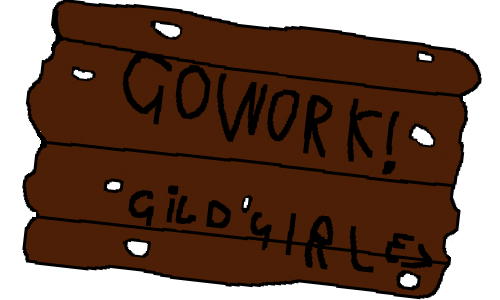 GOWORK!
GiLD'GIRLES